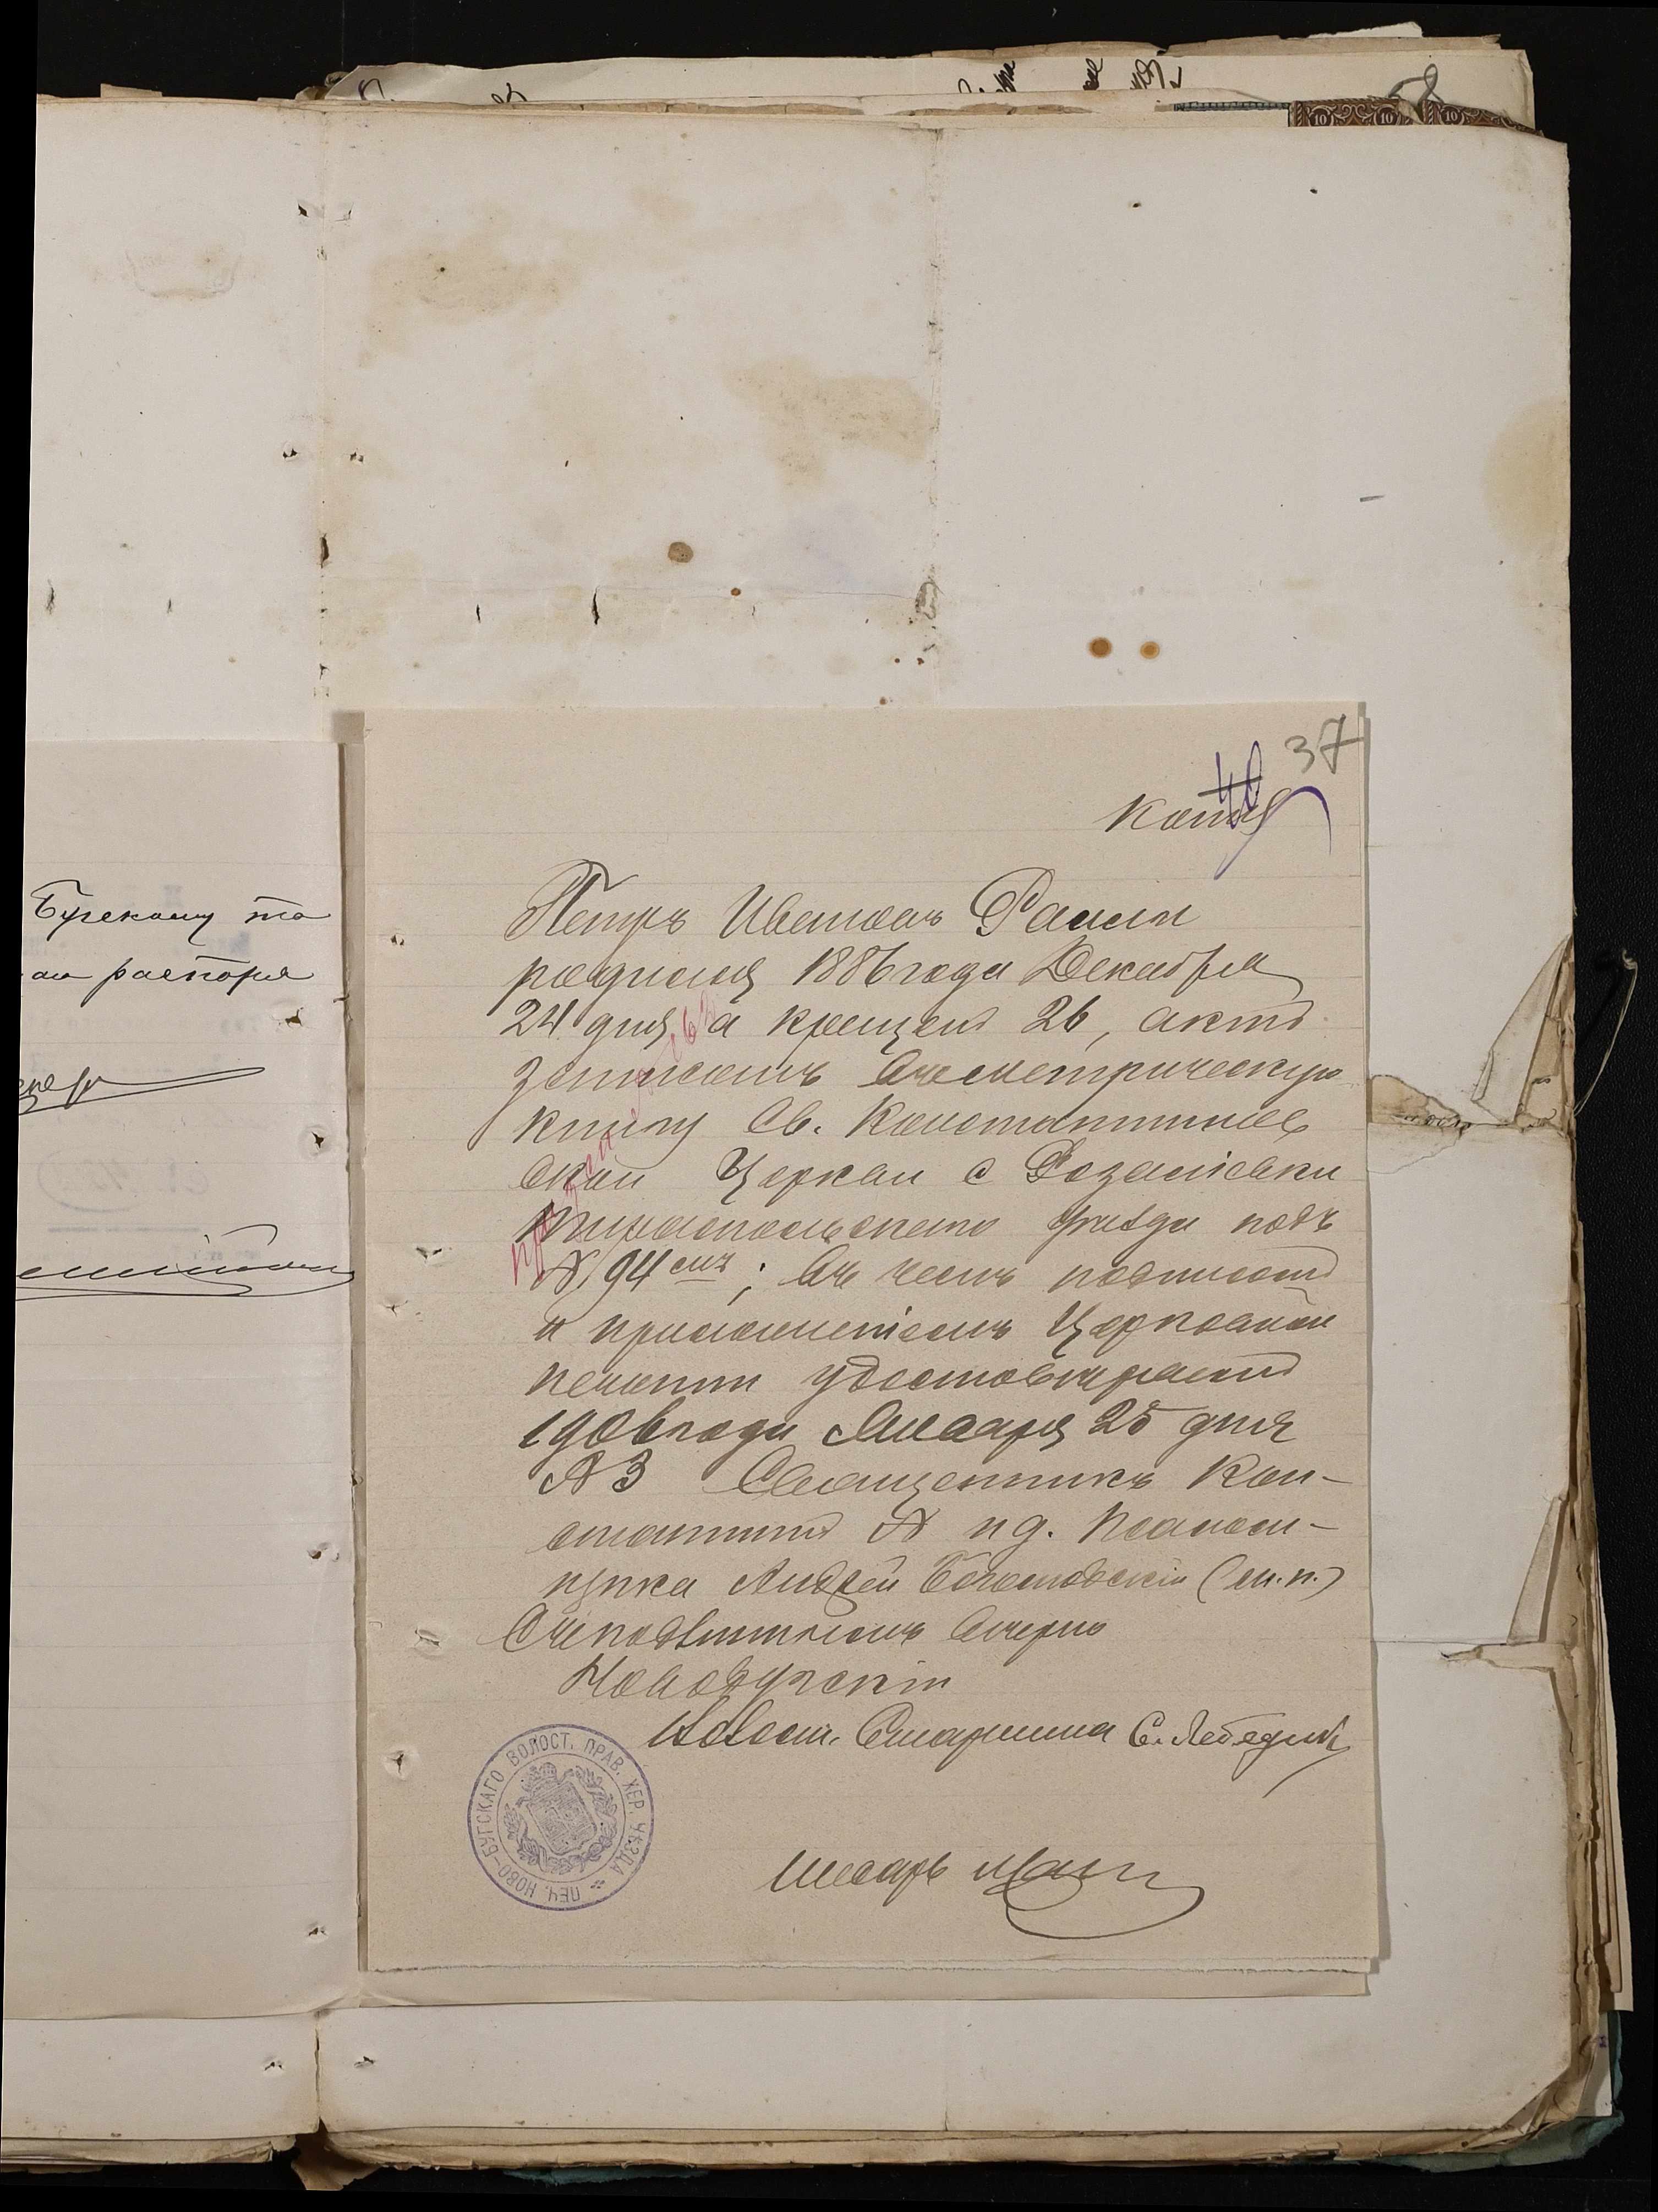 37
40
Копія
Петръ Ивановъ Раили
родился 1886 года Декабря
24 дня, а крещенъ 26, актъ
записанъ въ метрическую
книгу Св. Константинов
ской Церкви с Розаліевки
Тираспольскаго уѣзда подъ
№ 94 мъ; въ чемъ подписомъ
и приложеніемъ Церковной
печати удостовѣряемъ
1906 года Января 25 дня
№ 3 Священникъ Кон-
стантинъ и д. Псалом-
щика Андрей (м.п.)
Съ подлиннымъ вѣрно
Новобугскій
Волост. Старшина С. Лебедик
Писарь
ПЕЧ. НОВО-БУГСКАГО ВОЛОСТ. ПРАВ. ХЕР. УѢЗДА
Бугскому
распоря